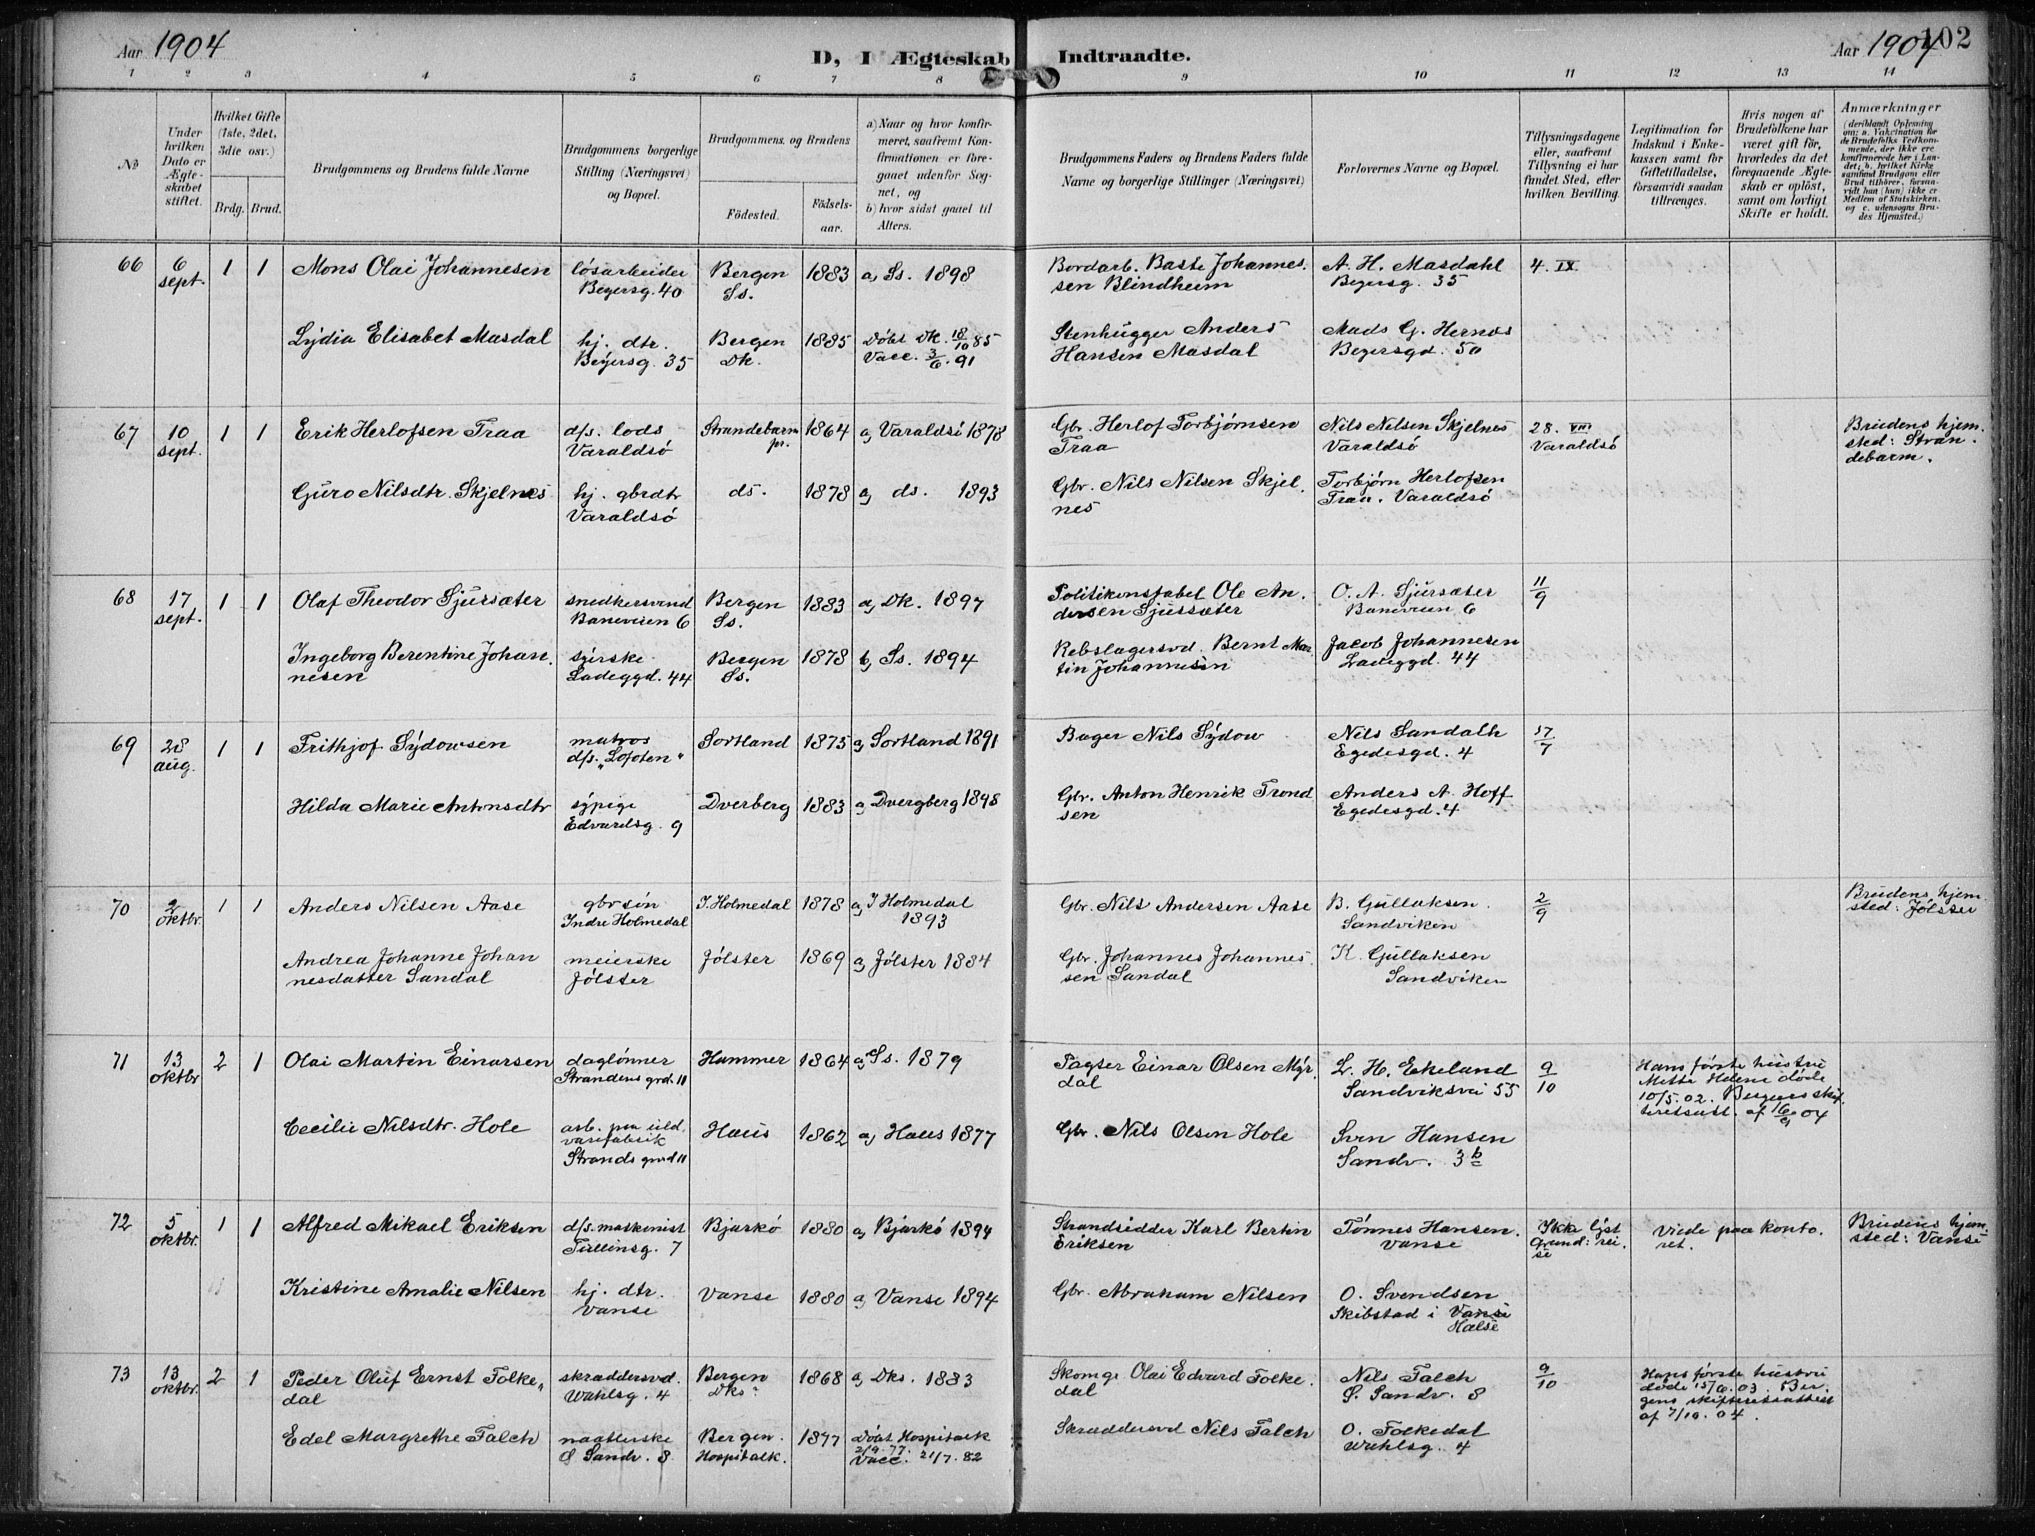 Aar 1904
D, I Ægteskab Indtraadte.
Aar 1904
102
1 2 3 4 5 6 7 8 9 10 11 12 13 14
No
Under hvilken Dato er Ægteskabet stiftet.
Hvilket Gifte (1ste, 2det, 3die osv.)
Brdg. Brud.
Brudgommens og Brudens fulde Navne
Brudgommens borgerlige Stilling (Næringsvei) og Bopæl.
Brudgommens og Brudens
Fødested.
Fødselsaar.
a) Naar og hvor konfirmeret, saafremt Konfirmationen er foregaaet udenfor Sognet, og
b) hvor sidst gaaet til Alters.
Brudgommens Faders og Brudens Faders fulde Navne og borgerlige Stillinger (Næringsvei)
Forlovernes Navne og Bopæl.
Tillysningsdagene eller, saafremt Tillysning ei har fundet Sted, efter hvilken Bevilling.
Legitimation for Indskud i Enkekassen samt for Giftetilladelse, forsaavidt saadan tiltrænges.
Hvis nogen af Brudefolkene har været gift før, hvorledes da det foregaaende Ægteskab er opløst, samt om lovligt Skifte er holdt.
Anmærkninger
(deriblandt Oplysning om: a. Vakcination for de Brudefolks Vedkommende, der ikke ere konfirmerede her i Landet; b. hvilket Kirkesamfund Brudgom eller Brud tilhører, forsaavidt han (hun) ikke er Medlem af Statskirken. og c. udensogns Brudes Hjemsted.)
66 6 sept. 1 1 Mons Olai Johannesen
løsarbeider Beyersg. 40
Bergen Ss. 1883 a, Ss. 1898
Bordarb. Baste Johannessen Blindheim
A. H. Masdahl Beyersg. 35
4. IX
Lydia Elisabet Masdal
hj. dtr. Beyersg. 35
Bergen Dk. 1885 Døbt Dk. 18/10 85 Vacc. 3/6. 91
Stenhugger Anders Hansen Masdal
Mads G. Hernes Beyersgd. 50
67 10 sept. 1 1 Erik Herlofsen Traa
d/s. lods Varaldsø
Strandebarm pr. 1864 a, Varaldsø 1878
Gbr. Herlof Torbjørnsen Traa
Nils Nilsen Skjelnes Varaldsø
28. VIII Varaldsø
Brudens hjemsted: Strandebarm.
Guro Nilsdtr. Skjelnes
hj. gbrdtr Varaldsø
ds. 1878 a, ds. 1893
Gbr. Nils Nilsen Skjelnes
Torbjørn Herlofsen Traa. Varaldsø
68 17 sept. 1 1 Olaf Theodor Sjursæter
snedkersvend Baneveien 6
Bergen Ss. 1883 a, Dk. 1897
Politikonstabel Ole Andersen Sjursæter
O. A. Sjursæter Baneveien 6
11/9
Ingeborg Berentine Johannesen
syerske Ladeggd. 44
Bergen Ss. 1878 b, Ss. 1894
Rebslagersvd. Bernt Martin Johannesen
Jacob Johannesen Ladeggd. 44
69 28 aug. 1 1 Frithjof Sydowsen
matros d/s. "Lofoten"
Sortland 1875 a, Sortland 1891
Bager Nils Sydow
Nils Sandalh Egedesgd. 4
17/7
Hilda Marie Antonsdtr
sypige Edvardsg. 9
Dverberg 1883 a, Dvergberg 1898
Gbr. Anton Henrik Trondsen
Anders A. Hoff Egedesgd. 4
70 2 oktbr. 1 1 Anders Nilsen Aase
gbrsøn Indre Holmedal
I. Holmedal 1878 a, I Holmedal 1893
Gbr. Nils Andersen Aase
B. Gullaksen. Sandviken
2/9
Brudens hjemsted: Jølster
Andrea Johanne Johannesdatter Sandal
meierske Jølster
Jølster 1869 a, Jølster 1884
Gbr. Johannes Johannessen Sandal
K. Gullaksen Sandviken
71 13 oktbr 2 1 Olai Martin Einarsen
daglønner Strandens grd. 11
Hammer 1864 a, Ss. 1879
Pagter Einar Olsen Myrdal
L. H. Ekeland Sandviksvei 55
9/10
Hans første hustru Mette Helene døde 10/5. 02. Bergens skifteretsatt. af 16/9 04
Cecilie Nilsdtr. Hole
arb. paa uldvarefabrik Strands grd 11
Haus 1862 a, Haus 1877
Gbr. Nils Olsen Hole
Sven Hansen Sandv. 3 b
72 5 oktbr. 1 1 Alfred Mikael Eriksen
d/s. maskinist Tullinsg. 7
Bjarkø 1880 a, Bjarkø 1894
Strandsidder Karl Bertin Eriksen
Tønnes Hansen. Vanse
Ikke lyst Grund: reise
Viede paa kontoret.
Brudens hjemsted: Vanse
Kristine Amalie Nilsen
hj. dtr. Vanse
Vanse 1880 a, Vanse 1894
Gbr. Abraham Nilsen
O. Svendsen Skibstad i Vanse Halse
73 13 oktbr. 2 1 Peder Oluf Ernst Folkedal
skræddersvd. Wahlsg. 4
Bergen Dks. 1868 a, Dks. 1883
Skomg. Olai Edvard Folkedal
Nils Falch Ø. Sandv. 8
9/10
Hans første hustru døde 15/6. 03. Bergens skifteretsattest af 7/10. 04.
Edel Margrethe Falch
naatlerske Ø Sandv. 8
Bergen Hospitalk. 1877 Døbt Hospitalk 2/9. 77. Vacc. 21/7. 82
Skræddersvd Nils Falch
O. Folkedal Wahlsg. 4